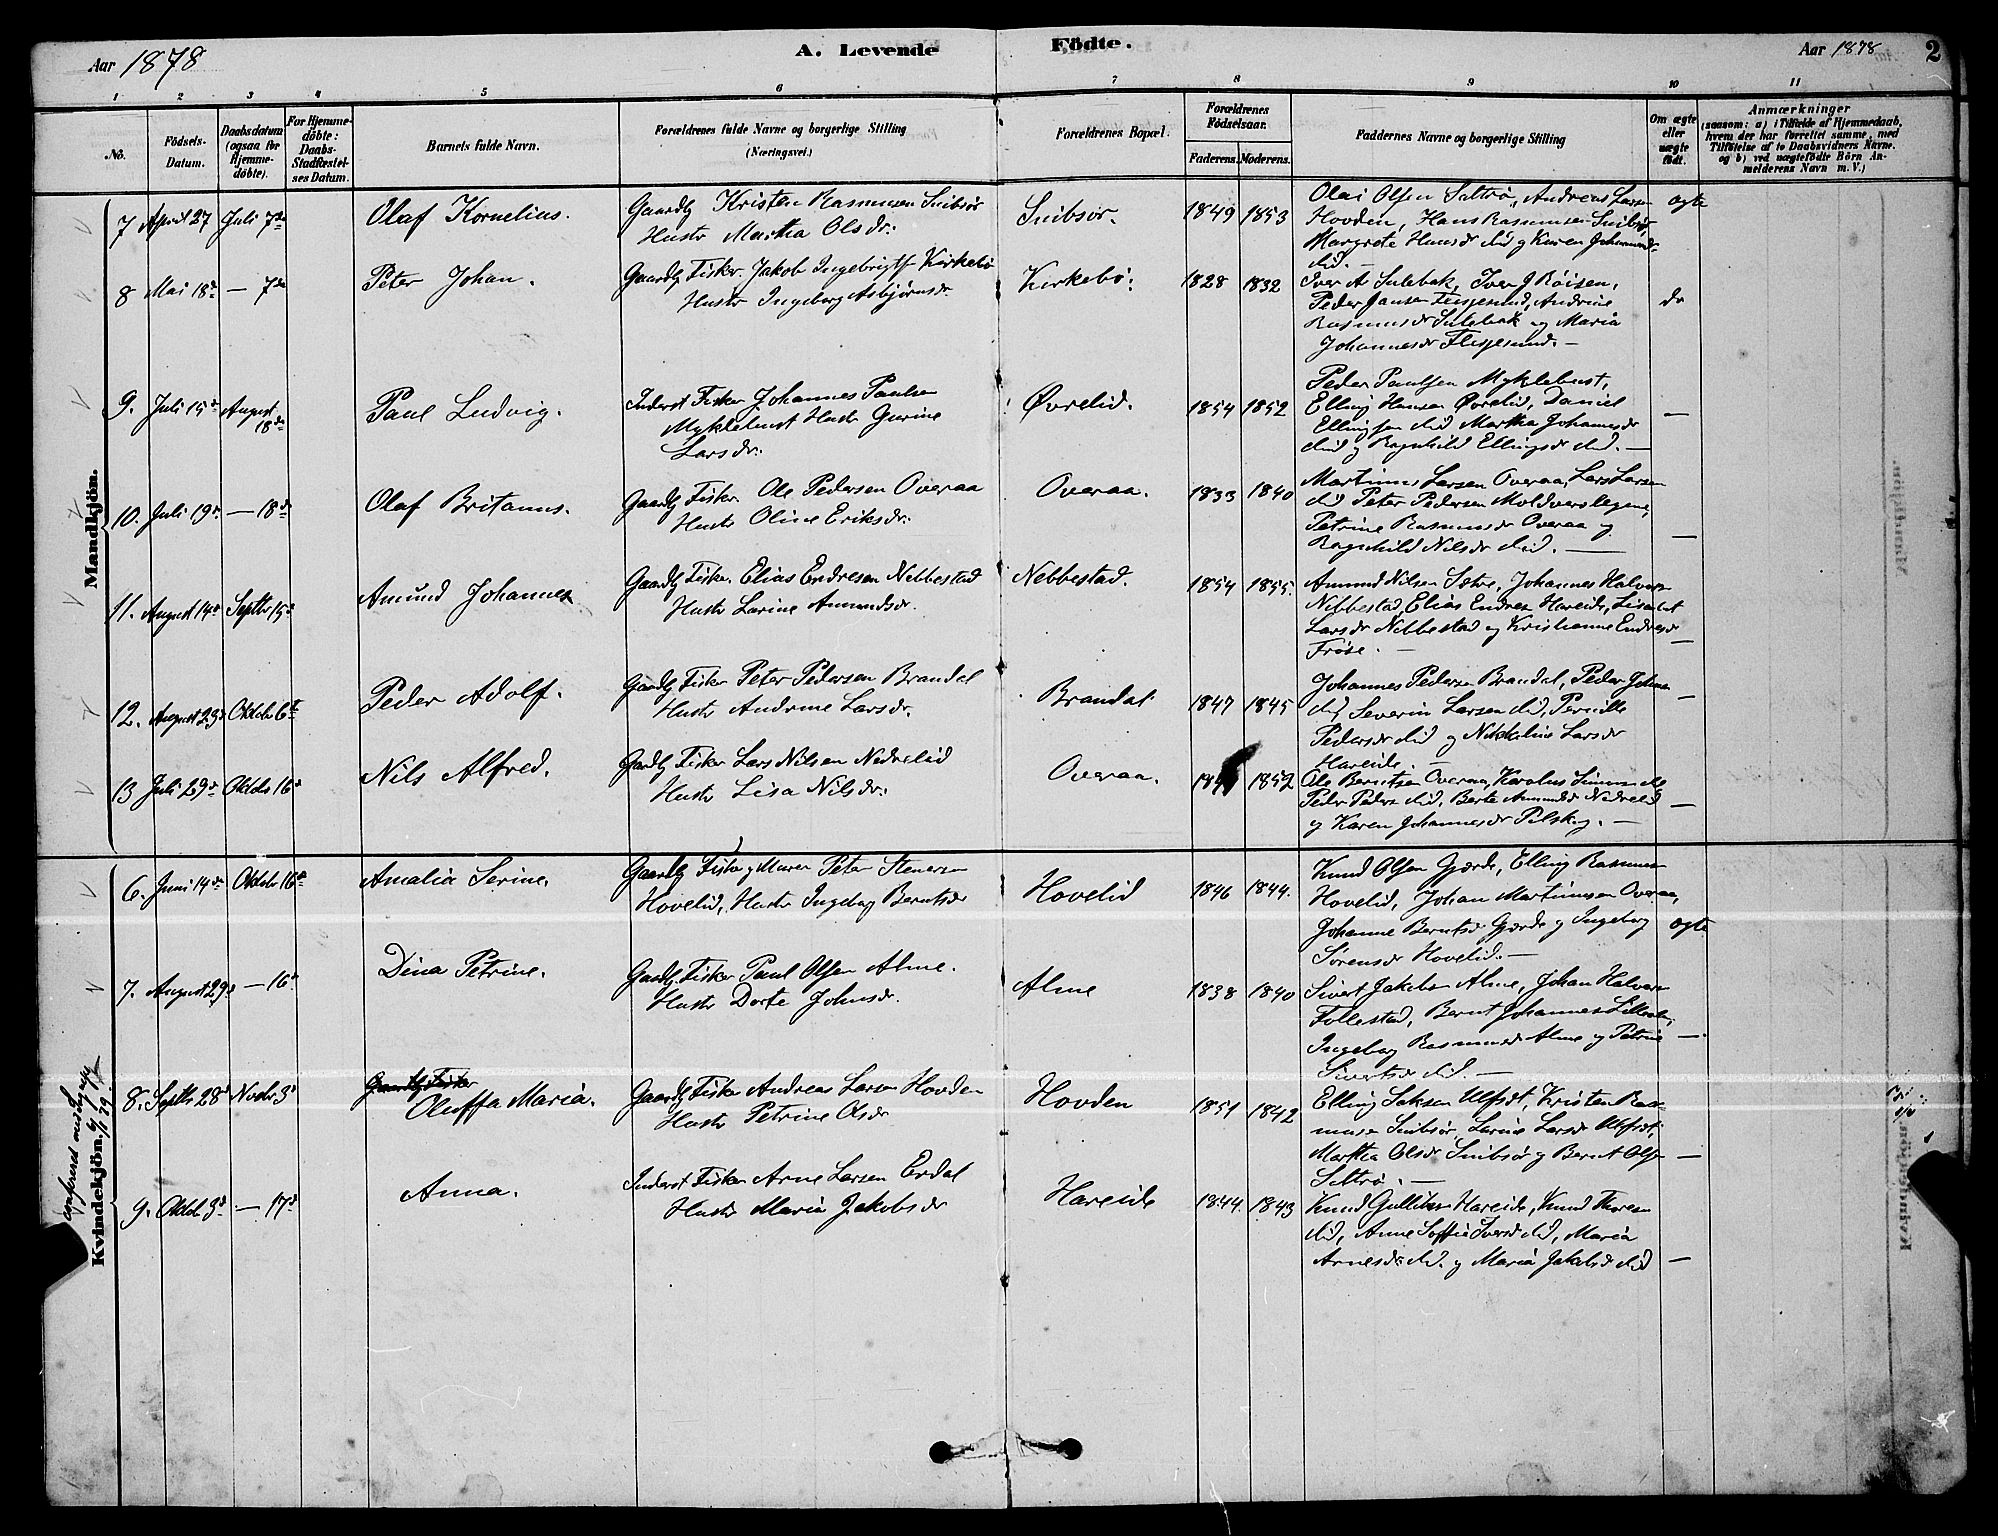 Aar 1878
A. Levende Födte.
Aar 1878
2
1 2 3 4 5 6 7 8 9 10 11
No.
Födsels-Datum.
Daabsdatum (ogsaa for Hjemmedöbte).
For Hjemmedöbte: Daabs-Stadfæstelses Datum.
Barnets fulde Navn.
Forældrenes fulde Navne og borgerlige Stilling (Næringsvei.)
Forældrenes Bopæl.
Forældrenes Födselsaar.
Faderens. Moderens.
Faddernes Navne og borgerlige Stilling
Om ægte eller uægte födt.
Anmærkninger
(saasom: a) i Tilfælde af Hjemmedaab,
hvem der har forrettet samme, med
Tilföielse af to Daabsvidners Navne.
og b) ved uægtefödte Börn An-
melderens Navn m. V.)
Mandkjön.
7 April 27 Juli 7de Olaf Kornelius. Gaardb Kristen Rasmusen Snibsør Hustr Martha Olsdr: Snibsør. 1849 1853 Olai Olsen Sæltrø, Andreas Larsen ægte
Hovden, Hans Rasmusen Snibsør,
Margrete Hansdr ibid og Karen Johannesdr
ibid.
8 Mai 18de — 7de Peter Johan. Gaardb Fisker. Jakob Ingebrigts Kirkebø Hustr Ingeborg Asbjørnsdr. Kirkebø: 1828 1832 Iver A Sulebak, Iver J Røisen, do
Peder Jansen Flusjesund, Andrine
Rasmusdr Sulebak og Maria
Johannesdr Flusjesund. —
9. Juli 15de August 18de Paul Ludvig. Inderst Fisker Johannes Paulsen Myklebust Hustr Gurine Larsdr: Øvrelid. 1854 1852 Peder Paulsen Myklebust, —
Elling Hansen Øvrelid, Daniel
Ellingsen ibid Martha Johannesdr
ibid og Ragnhild Ellingsdr ibid. —
10. Juli 19de — 18de Olaf Britanus. Gaardb Fisker. Ole Pedersen Overaa Hustr Oline Eriksdr: Overaa. 1833 1840 Martinus Larsen Overaa, Lars Larsen
ibid Peter Pedersen Moldverslegene,
Petrine Rasmusdr Overaa og
Ragnhild Nilsdr ibid. — —
11. August 14de Septbr 15de Amund Johannes Gaardb Fisker. Elias Endresen Nebbestad Hustr Larine Amundsdr. Nebbestad. 1854 1855. Amund Nilsen Sætre, Johannes Halvors
Nebbestad, Elias Endres Hareide, Lisabet
Larsdr Nebbestad og Kristianne Endresdr —
Frøse. —
12. August 23de Oktobr 6te Peder Adolf. Gaardb Fisker Peter Pedersen Brandal Hustr Andrine Larsdr. Brandal 1847 1845 Johannes Pedersen Brandal, Peder Johan —
ibid Severin Larsen ibid, Pernille
Pedersdr ibid og Nikoline Larsdr
Hareide. —
13 Juli 29de Oktobr 16de Nils Alfred. Gaardb Fisker Lars Nilsen Nedrelid Hustr Lisa Nilsdr: Overaa. 1852 Ole Berntsen Overaa, Karolus Simons ibid
Peder Peders ibid, Berte Amundsdr Nedrelid —
og Karen Johannesdr Pilskog. —
Kvindekjön.
6. Juni 14de Oktobr 16de Amalia Serine. Gaardb Fisker og Murer Peter Stenersen Hovelid, Hustr Ingeborg Berntsdr Hovelid 1846 1844. Knud Olsen Gjærde, Elling Rasmusen
Hovelid, Johan Martinusen Overaa,
Johanne Berntsdr Gjærde og Ingeborg ægte
Sørensdr Hovelid. —
7. August 29de — 16de Dina Petrine. Gaardb Fisker Paul Olsen Alme. Hustr Dorte Johnsdr. Alme 1838 1840 Sivert Jakobsen Alme, Johan Halvorsen
Follestad, Bernt Johannes
Ingeborg Rasmusdr Alme og Petrine —
Sivertsdr ibid. —
8. Septbr 28de Novbr 3de Gaardb Fisker Oluffa Maria. Gaardb Fisker Andreas Larsen Hovden Hustr Petrine Olsdr Hovden 1851 1842 Elling Saksen Ulfsdt, Kristen Ras-
musen Snibsør, Larine Larsdr Ulfsdt,
Martha Olsdr Snibsør og Bernt Olsen —
Sæltrø. —
9. Oktob 3de — 17de Anna. Inderst Fisker Arne Larsen Erdal Hustr Maria Jakobsdr Hareide 1844. 1843 Knud Gulliksen Hareide, Knud Thoresen
ibid, Anne Soffie Iversdr ibid, Maria
Arnesdr ibid. og Maria Jakobsdr ibid —